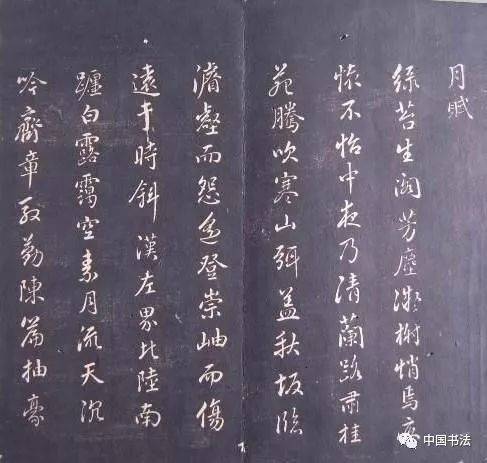 月賦
綠苔生閣芳塵凝榭悄焉疚
懷不怡中夜乃清蘭路肅桂
苑騰吹寒山弭蓋秋坂臨
濬壑而怨遙登崇岫而傷
遠于時斜漢左界北陸南
躔白露靄空素月流天沉
吟齊章殷勤陳篇抽豪
中国书法